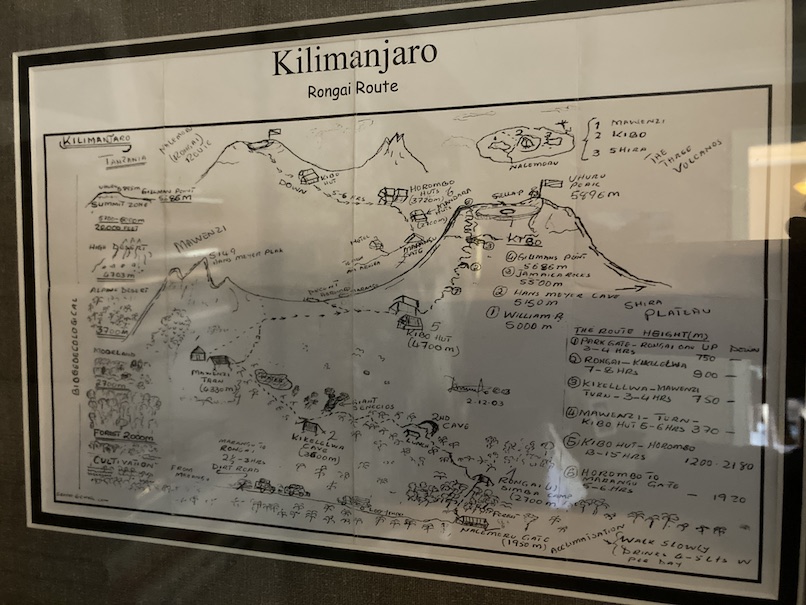 Kilimanjaro
Rongai Route
KILIMANJARO
TANZANIA
NALEMORU
(RONGAI)
ROUTE
1 MAWENZI
2 KIBO
3 SHIRA
THE THREE
VOLCANOS
NALEMORU
KIBO
HUT
DOWN
5-6 HRS
HOROMBO
HUTS
(3720m)
MANDARA
HUTS
MARANGU
GATE
UHURU
PEAK
5896m
GILLMANS POINT
5686m
SUMMIT ZONE
HIGH DESERT
ALPINE DESERT
3700m
MOORLAND
2700m
FOREST 2000m
CULTIVATION
MAWENZI
5149
HANS MEYER PEAK
KIBO
④ GILLMANS POINT
5686m
③ JAMAICA ROCKS
5500m
② HANS MEYER CAVE
5150m
① WILLIAM P.
5000m
5
KIBO HUT
(4700m)
SHIRA
PLATEAU
THE ROUTE HEIGHT(M)
UP DOWN
① PARK GATE - RONGAI ONE
3-4 HRS 750 -
② RONGAI - KIKELELWA
7-8 HRS 900 -
③ KIKELLLWA - MAWENZI
TURN - 3-4 HRS 750 -
④ MAWENZI - TURN -
KIBO HUT 5-6 HRS 370 -
⑤ KIBO HUT - HOROMBO
13-15 HRS 1200 - 2180
⑥ HOROMBO TO
MARANGU GATE
5-6 HRS - 1920
MAWENZI
TRAN
(4330m)
GIANT
SENECIOS
2.12.03
2
KIKELLLWA
CAVE
(3600m)
2ND
CAVE
LUNCH
MARANGU TO
RONGAI
2½-3HRS
DIRT ROAD
FROM
RONGAI (1)
SIMBA CAMP
(2700m)
FOREST
NALEMERU GATE
(1950m)
ACCLIMATISATION
WALK SLOWLY
DRINK 4-5 LTS W
PER DAY